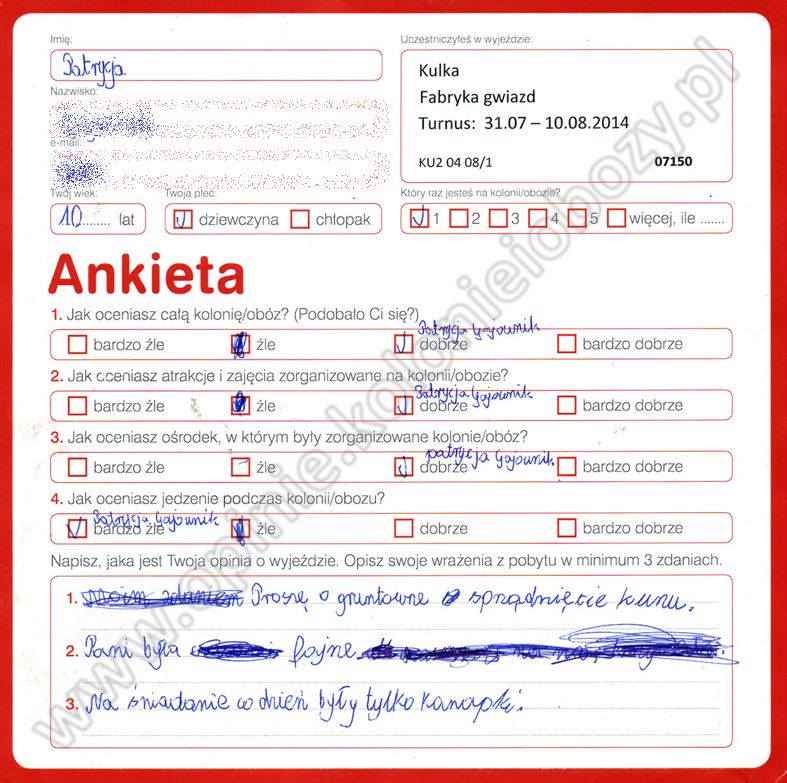 Imię:
Uczestniczyłeś w wyjeździe:
Patrycja
Kulka
Fabryka gwiazd
Turnus: 31.07 – 10.08.2014
KU2 04 08/1 07150
Nazwisko:
e-mail:
Twój wiek: Twoja płeć: Który raz jesteś na kolonii/obozie?
10 lat dziewczyna chłopak 1 2 3 4 5 więcej, ile .......
Ankieta
1. Jak oceniasz całą kolonię/obóz? (Podobało Ci się?)
Patrycja Gajownik
bardzo źle źle dobrze bardzo dobrze
2. Jak oceniasz atrakcje i zajęcia zorganizowane na kolonii/obozie?
Patrycja Gajownik
bardzo źle źle dobrze bardzo dobrze
3. Jak oceniasz ośrodek, w którym były zorganizowane kolonie/obóz?
patrycja Gajownik
bardzo źle źle dobrze bardzo dobrze
4. Jak oceniasz jedzenie podczas kolonii/obozu?
Patrycja Gajownik
bardzo źle źle dobrze bardzo dobrze
Napisz, jaka jest Twoja opinia o wyjeździe. Opisz swoje wrażenia z pobytu w minimum 3 zdaniach.
1. Moim zdaniem Proszę o gruntowne sprządnięcie
2. Pani była fajne
3. Na śniadanie co dzień były tylko kanapki.
www.opinie.kolonieiobozy.pl